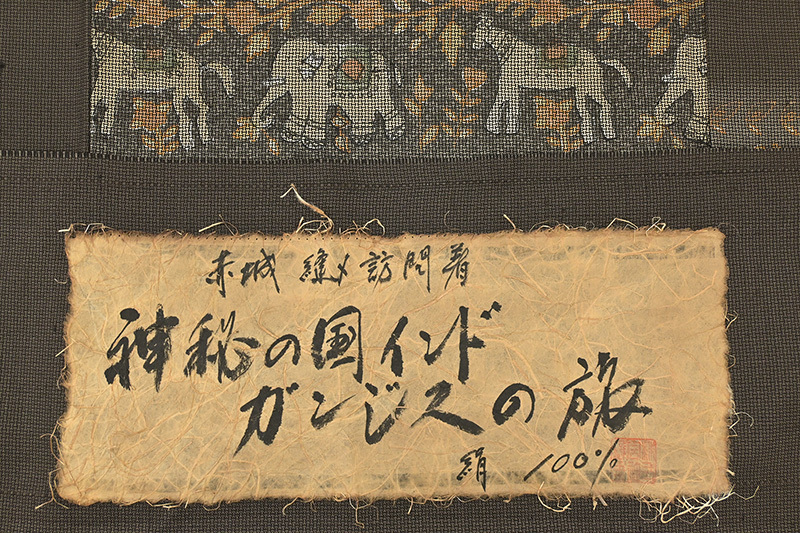 赤城 縫〆訪問着
神秘の国インド
ガンジスの旅
絹 100%